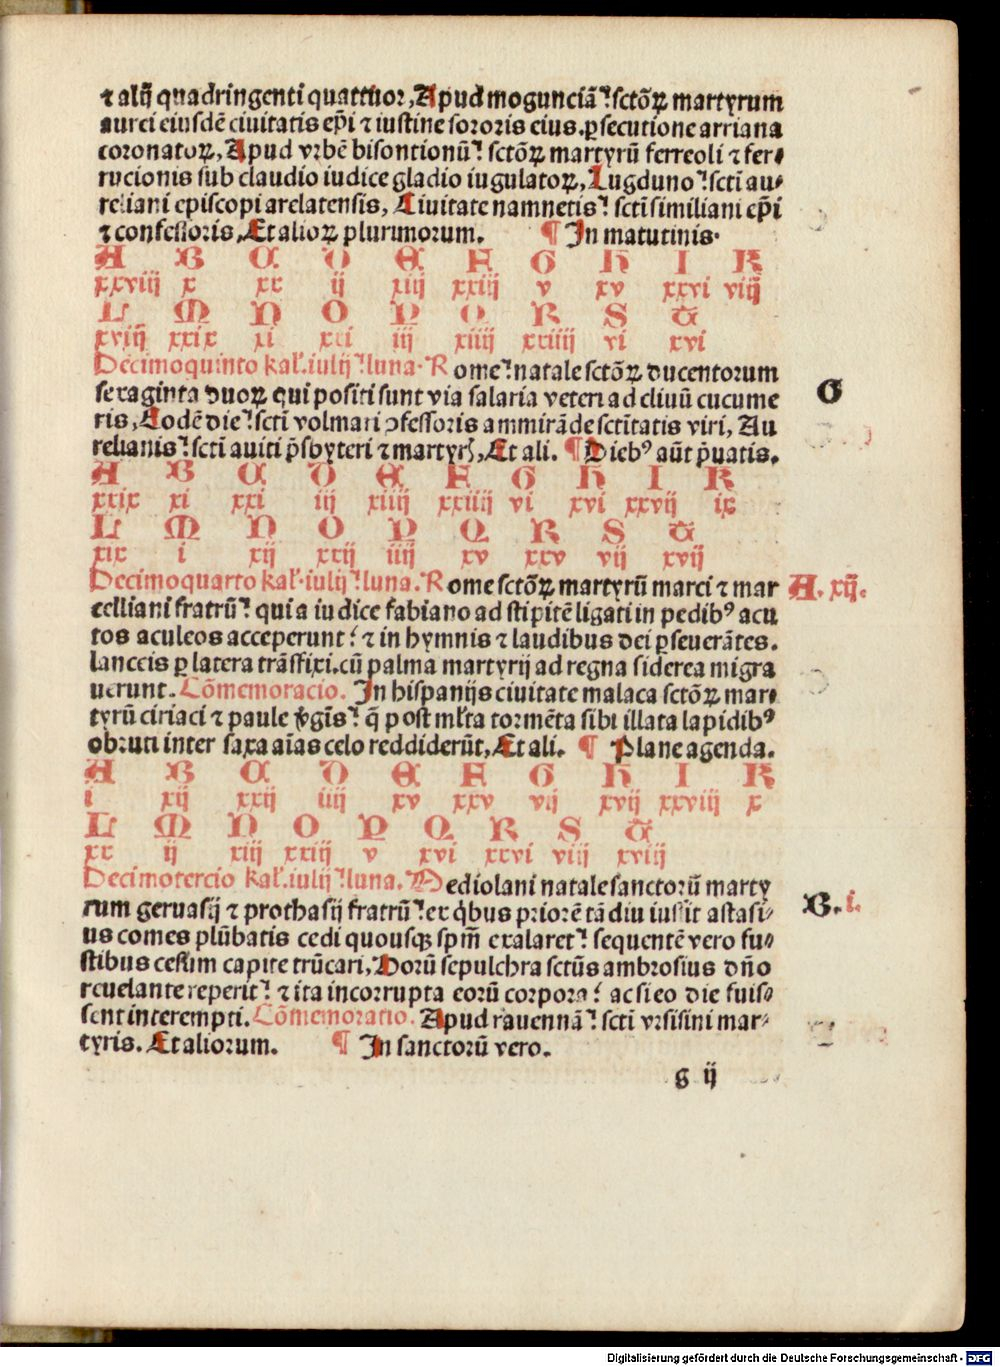 ⁊ alij quadringenti quattuor, Apud mogunciā sctōꝝ martyrum
aurei eiusdē ciuitatis ep̄i ⁊ iustine sororis eius. ꝑsecutione arriana
coronatoꝝ, Apud vrbē bisontionū sctōꝝ martyrū ferreoli ⁊ fer⸗
rucionis sub claudio iudice gladio iugulatoꝝ, Lugduno sctī au⸗
reliani episcopi arelatensis, Ciuitate namnetis sctī similiani ep̄i
⁊ confessoris, Et alioꝝ plurimorum. ¶ In matutinis.
A B C D E F G H I K
xxviij x xx ij xiij xxiij v xv xxvi viij
L M N O P Q R S T
xviij xxix xi xxi iij xiiij xxiiij vi xvi
Decimoquinto kal̄. iulij luna. Rome natale sctōꝝ ducentorum
sexaginta duoꝝ qui positi sunt via salaria veteri ad cliuū cucume
ris, Eodē die sctī volmari ꝯfessoris ammirādе sctītatis viri, Au
relianis sctī auiti p̄sbyteri ⁊ martyrꝭ, Et ali. ¶ Diebꝰ aūt p̄uatis.
G
A B C D E F G H I K
xxix xi xxi iij xiiij xxiiij vi xvi xxvij ix
L M N O P Q R S T
xix i xij xxij iiij xv xxv vij xvij
Decimoquarto kal̄. iulij luna. Rome sctōꝝ martyrū marci ⁊ mar
A. xij.
celliani fratrū qui a iudice fabiano ad stipitē ligati in pedibꝰ acu
tos aculeos acceperunt ⁊ in hymnis ⁊ laudibus dei ꝑseuerātes.
lanceis ꝑ latera trāsfixi. cū palma martyrij ad regna siderea migra
uerunt. Cōmemoracio. In hispanijs ciuitate malaca sctōꝝ mar⸗
tyrū ciriaci ⁊ paule v̄gīs q̄ post ml̄ta tormēta sibi illata lapidibꝰ
obruti inter saxa aīas celo reddiderūt, Et ali. ¶ Plane agenda.
A B C D E F G H I K
i xij xxij iiij xv xxv vij xvij xxviij x
L M N O P Q R S T
xx ij xiij xxiij v xvi xxvi viij xviij
Decimotercio kal̄. iulij luna. Mediolani natale sanctorū marty
rum geruasij ⁊ prothasij fratrū ex q̇bus priorē tā diu iussit astasi⸗
B. i.
us comes plūbatis cedi quousqꝫ spm̄ exalaret sequentē vero fu⸗
stibus cesum capite trūcari, Horū sepulchra sctūs ambrosius dn̄o
reuelante reperit ⁊ ita incorrupta eorū corpora ac si eo die fuis⸗
sent interempti. Cōmemoratio. Apud rauennā sctī vrsisini mar⸗
tyris. Et aliorum. ¶ In sanctorū vero.
g ij
Digitalisierung gefördert durch die Deutsche Forschungsgemeinschaft - DFG